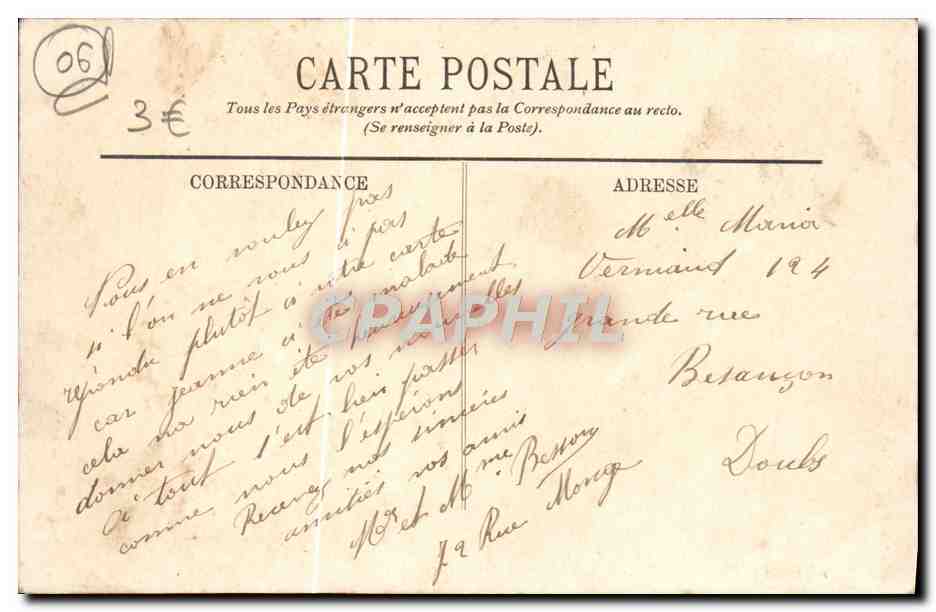 06
3€
CARTE POSTALE
Tous les Pays étrangers n'acceptent pas la Correspondance au recto.
(Se renseigner à la Poste).
CORRESPONDANCE
ADRESSE
en voulez pas
si l'on ne vous à pas
répondu plutôt à votre carte
car jeanne à été malade
cela na rien été heureusement
donner nous de vos nouvelles
à tout s'est bien passer
comme nous l'espérons
Recevez nos sincères
amitiés vos amis
Mr et Mme Besson
72 Rue Monge
Melle Maria
Verniaud 194
grande rue
Besançon
Doubs
CPAPHIL